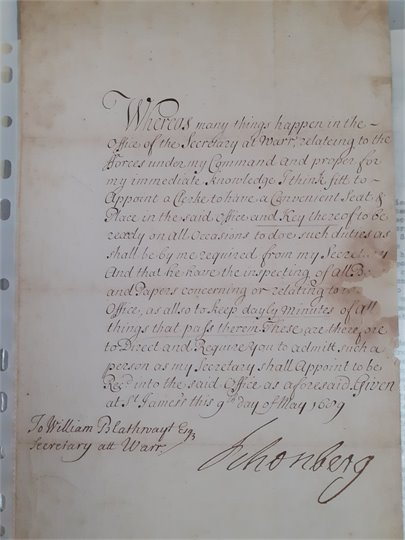 Whereas many things happen in the
Office of the Secretary at Warr, relating to the
fforces under my Command and proper for
my immediate Knowledge I think fitt to
Appoint a Clerke to have a Convenient Seat &
Place in the said Office and Key thereof to be
ready on all Occasions to doe such duties as
shall be by me required from my Secretary
And that he have the inspecting of all
and Papers concerning or relating to
Office, as also to keep dayly minutes of all
things that pass therein. These are therefore
to Direct and Require you to admitt such a
person as my Secretary shall Appoint to be
Recd into the said Office as aforesaid. Given
at St. James's this 9th day of May 1689
To William Blathwayt Esqr
Secretary att Warr
Schonberg